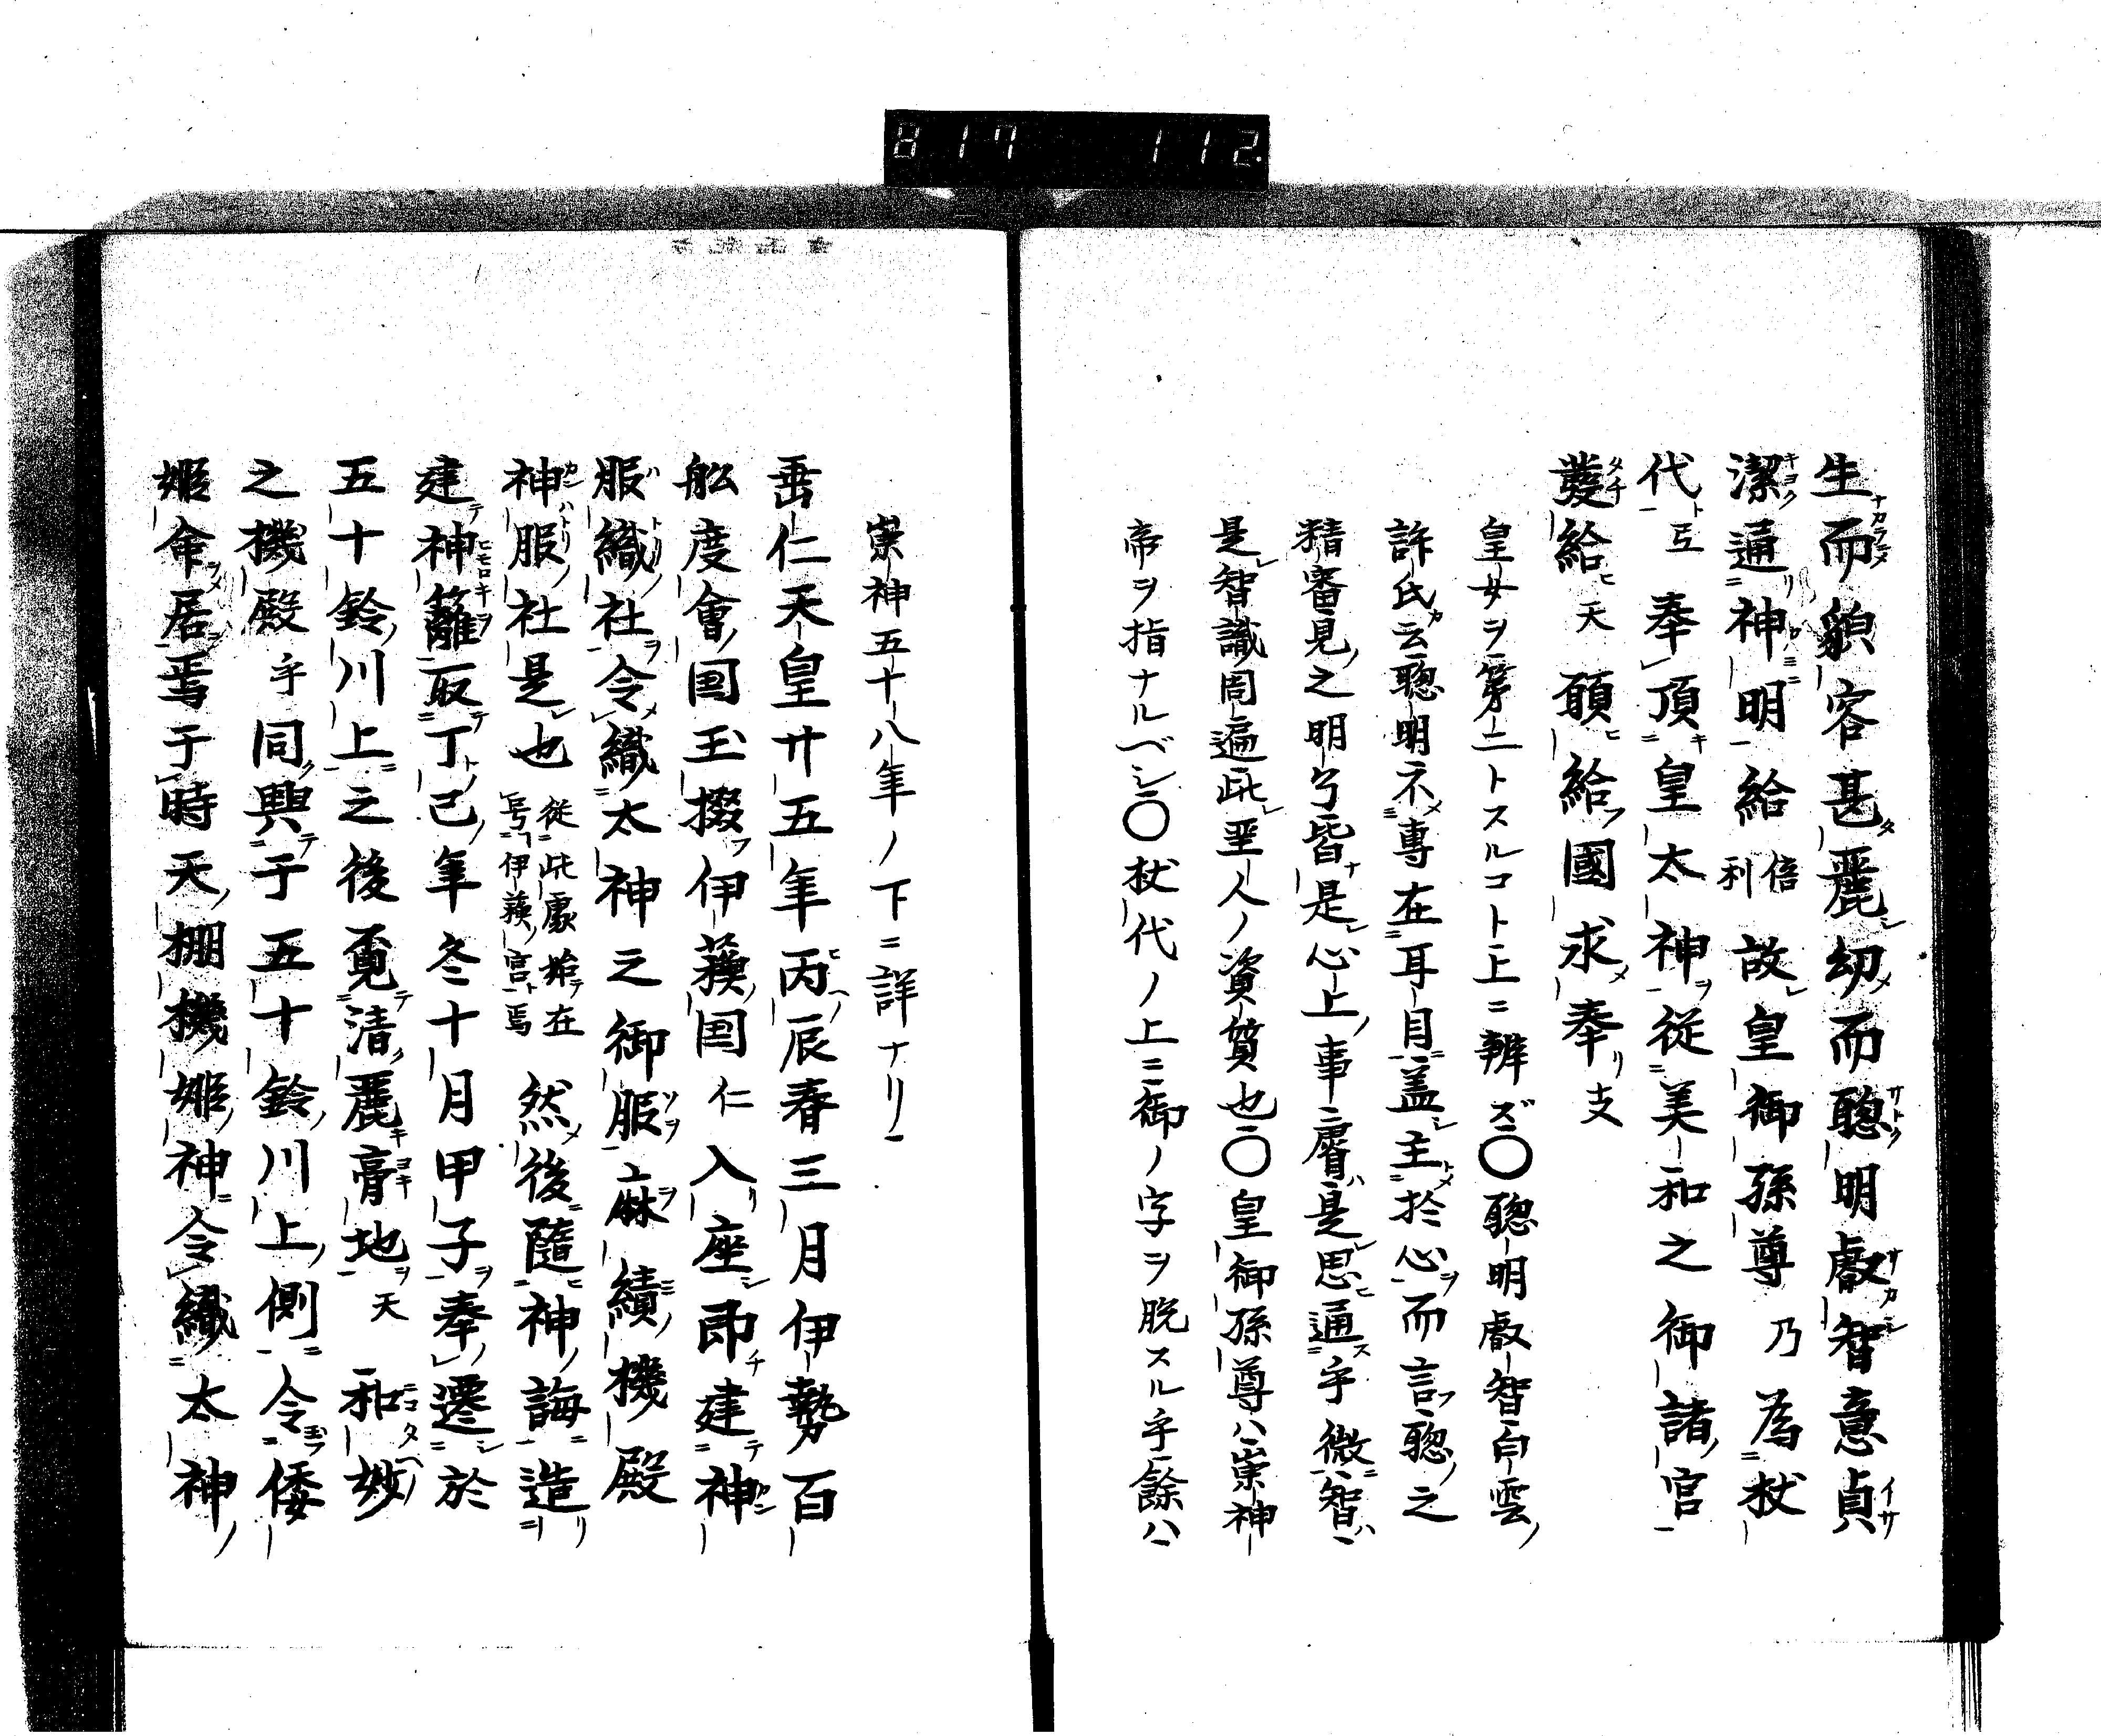 817 112
生而貌容甚麗幼而聰明叡智意貞
潔通神明給倍利故皇御孫尊乃為杖
代弖奉頂皇太神従美和之御諸官
發給天願給國求奉支
皇女ヲ第二トスルコト上ニ辨ズ〇聰明叡智白雲
許氏云聰明不専在耳目蓋主於心而言聰之
精審見之明皆是心上事二層是思通乎微智
是智識周遍此聖人ノ資質也〇皇御孫尊ハ崇神
帝ヲ指ナルベシ〇杖代ノ上ニ御ノ字ヲ脱スル乎餘ハ
崇神五十八年ノ下ニ詳ナリ
垂仁天皇廿五年丙辰春三月伊勢百
舩度會国玉掇伊蘓国仁入座即建神
服織社令織太神之御服麻績機殿
神服社是也従此處始在号伊蘓宮焉然後隨神誨造
建神籬取丁巳年冬十月甲子奉遷於
五十鈴川上之後覓清麗膏地天和妙
之機殿乎同興于五十鈴川上側令倭
姫命居焉于時天棚機姫神令織太神